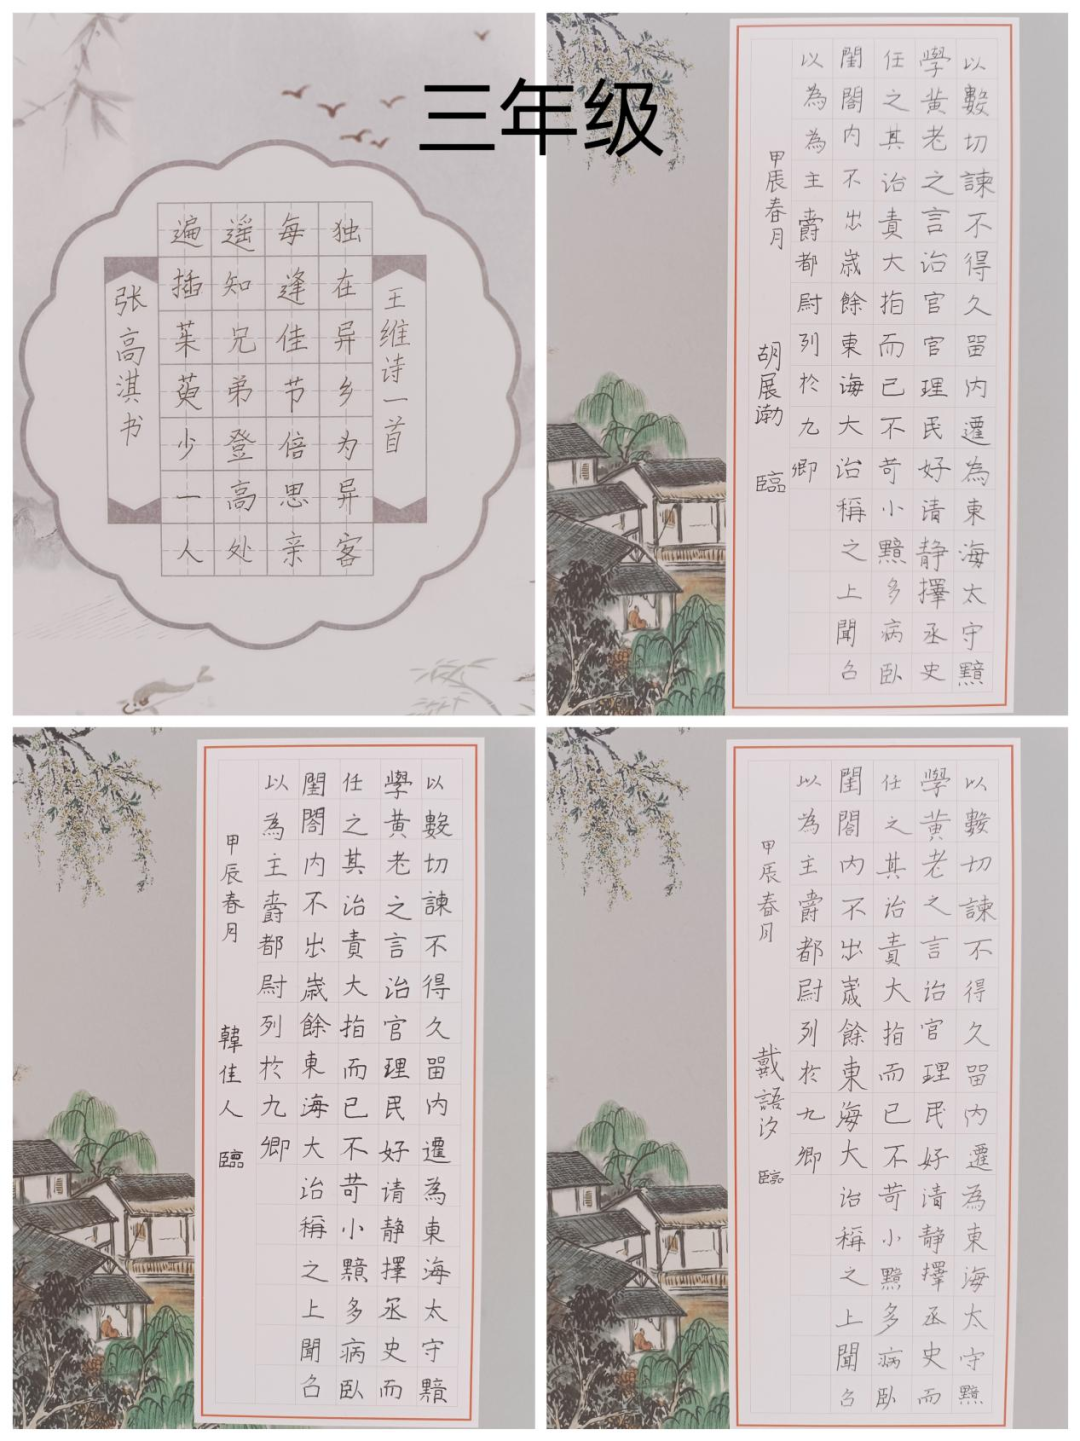 三年级
王维诗一首
独在异乡为异客
每逢佳节倍思亲
遥知兄弟登高处
遍插茱萸少一人
张高淇书
以數切諫不得久留内遷為東海太守黯
學黄老之言治官官理民好清静擇丞史
任之其治責大指而已不苛小黯多病臥
閨閤内不出歲餘東海大治稱之上聞召
以為為主爵都尉列於九卿
甲辰春月 胡展渤 臨
以數切諫不得久留内遷為東海太守黯
學黄老之言治官理民好请静擇丞史而
任之其治責大指而已不苛小黯多病臥
閨閤内不出歲餘東海大治稱之上聞召
以為主爵都尉列於九卿
甲辰春月 韓佳人 臨
以數切諫不得久留内遷為東海太守黯
學黄老之言治官理民好清静擇丞史而
任之其治責大指而已不苛小黯多病臥
閨閤内不出歲餘東海大治稱之上聞召
以為主爵都尉列於九卿
甲辰春月 戴語汐 臨